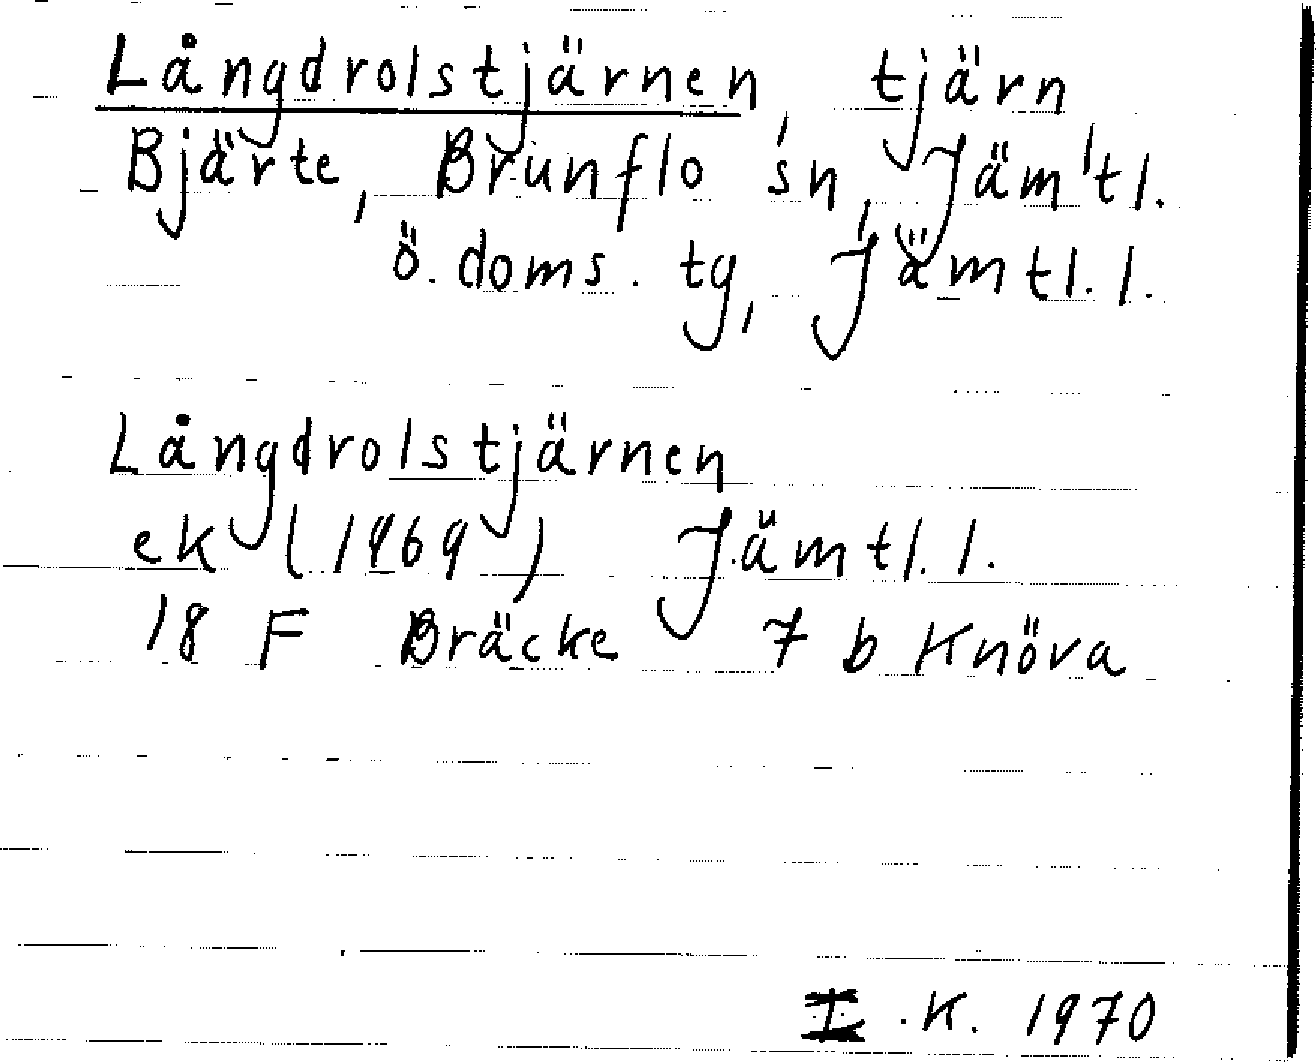 Långdrolstjärnen, tjärn
Bjärte, Brunflo sn, Jämtl.
ö. doms. tg, Jämtl. l.
Långdrolstjärnen
ek (1969) Jämtl. l.
18 F Bräcke 7 b Knöva
I.K. 1970